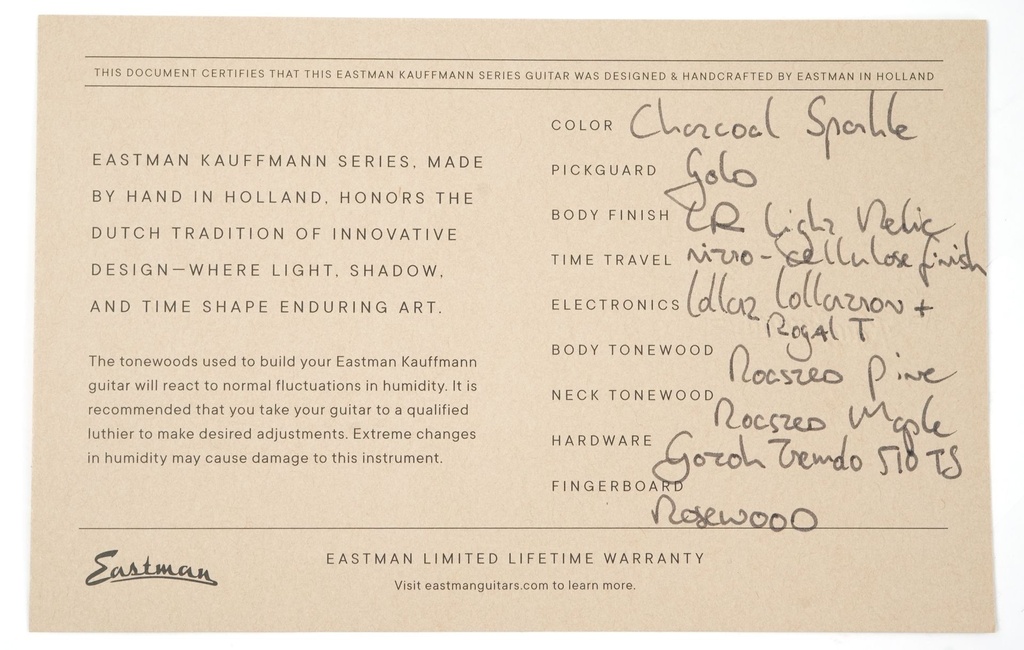 THIS DOCUMENT CERTIFIES THAT THIS EASTMAN KAUFFMANN SERIES GUITAR WAS DESIGNED & HANDCRAFTED BY EASTMAN IN HOLLAND
EASTMAN KAUFFMANN SERIES, MADE
BY HAND IN HOLLAND, HONORS THE
DUTCH TRADITION OF INNOVATIVE
DESIGN—WHERE LIGHT, SHADOW,
AND TIME SHAPE ENDURING ART.
The tonewoods used to build your Eastman Kauffmann
guitar will react to normal fluctuations in humidity. It is
recommended that you take your guitar to a qualified
luthier to make desired adjustments. Extreme changes
in humidity may cause damage to this instrument.
COLOR Charcoal Sparkle
PICKGUARD Gold
BODY FINISH Light Relic
TIME TRAVEL nitro-cellulose finish
ELECTRONICS Lollar +
Royal T
BODY TONEWOOD
Roasted Pine
NECK TONEWOOD
Roasted Maple
HARDWARE Gotoh Tremolo 510 TS
FINGERBOARD
Rosewood
Eastman
EASTMAN LIMITED LIFETIME WARRANTY
Visit eastmanguitars.com to learn more.